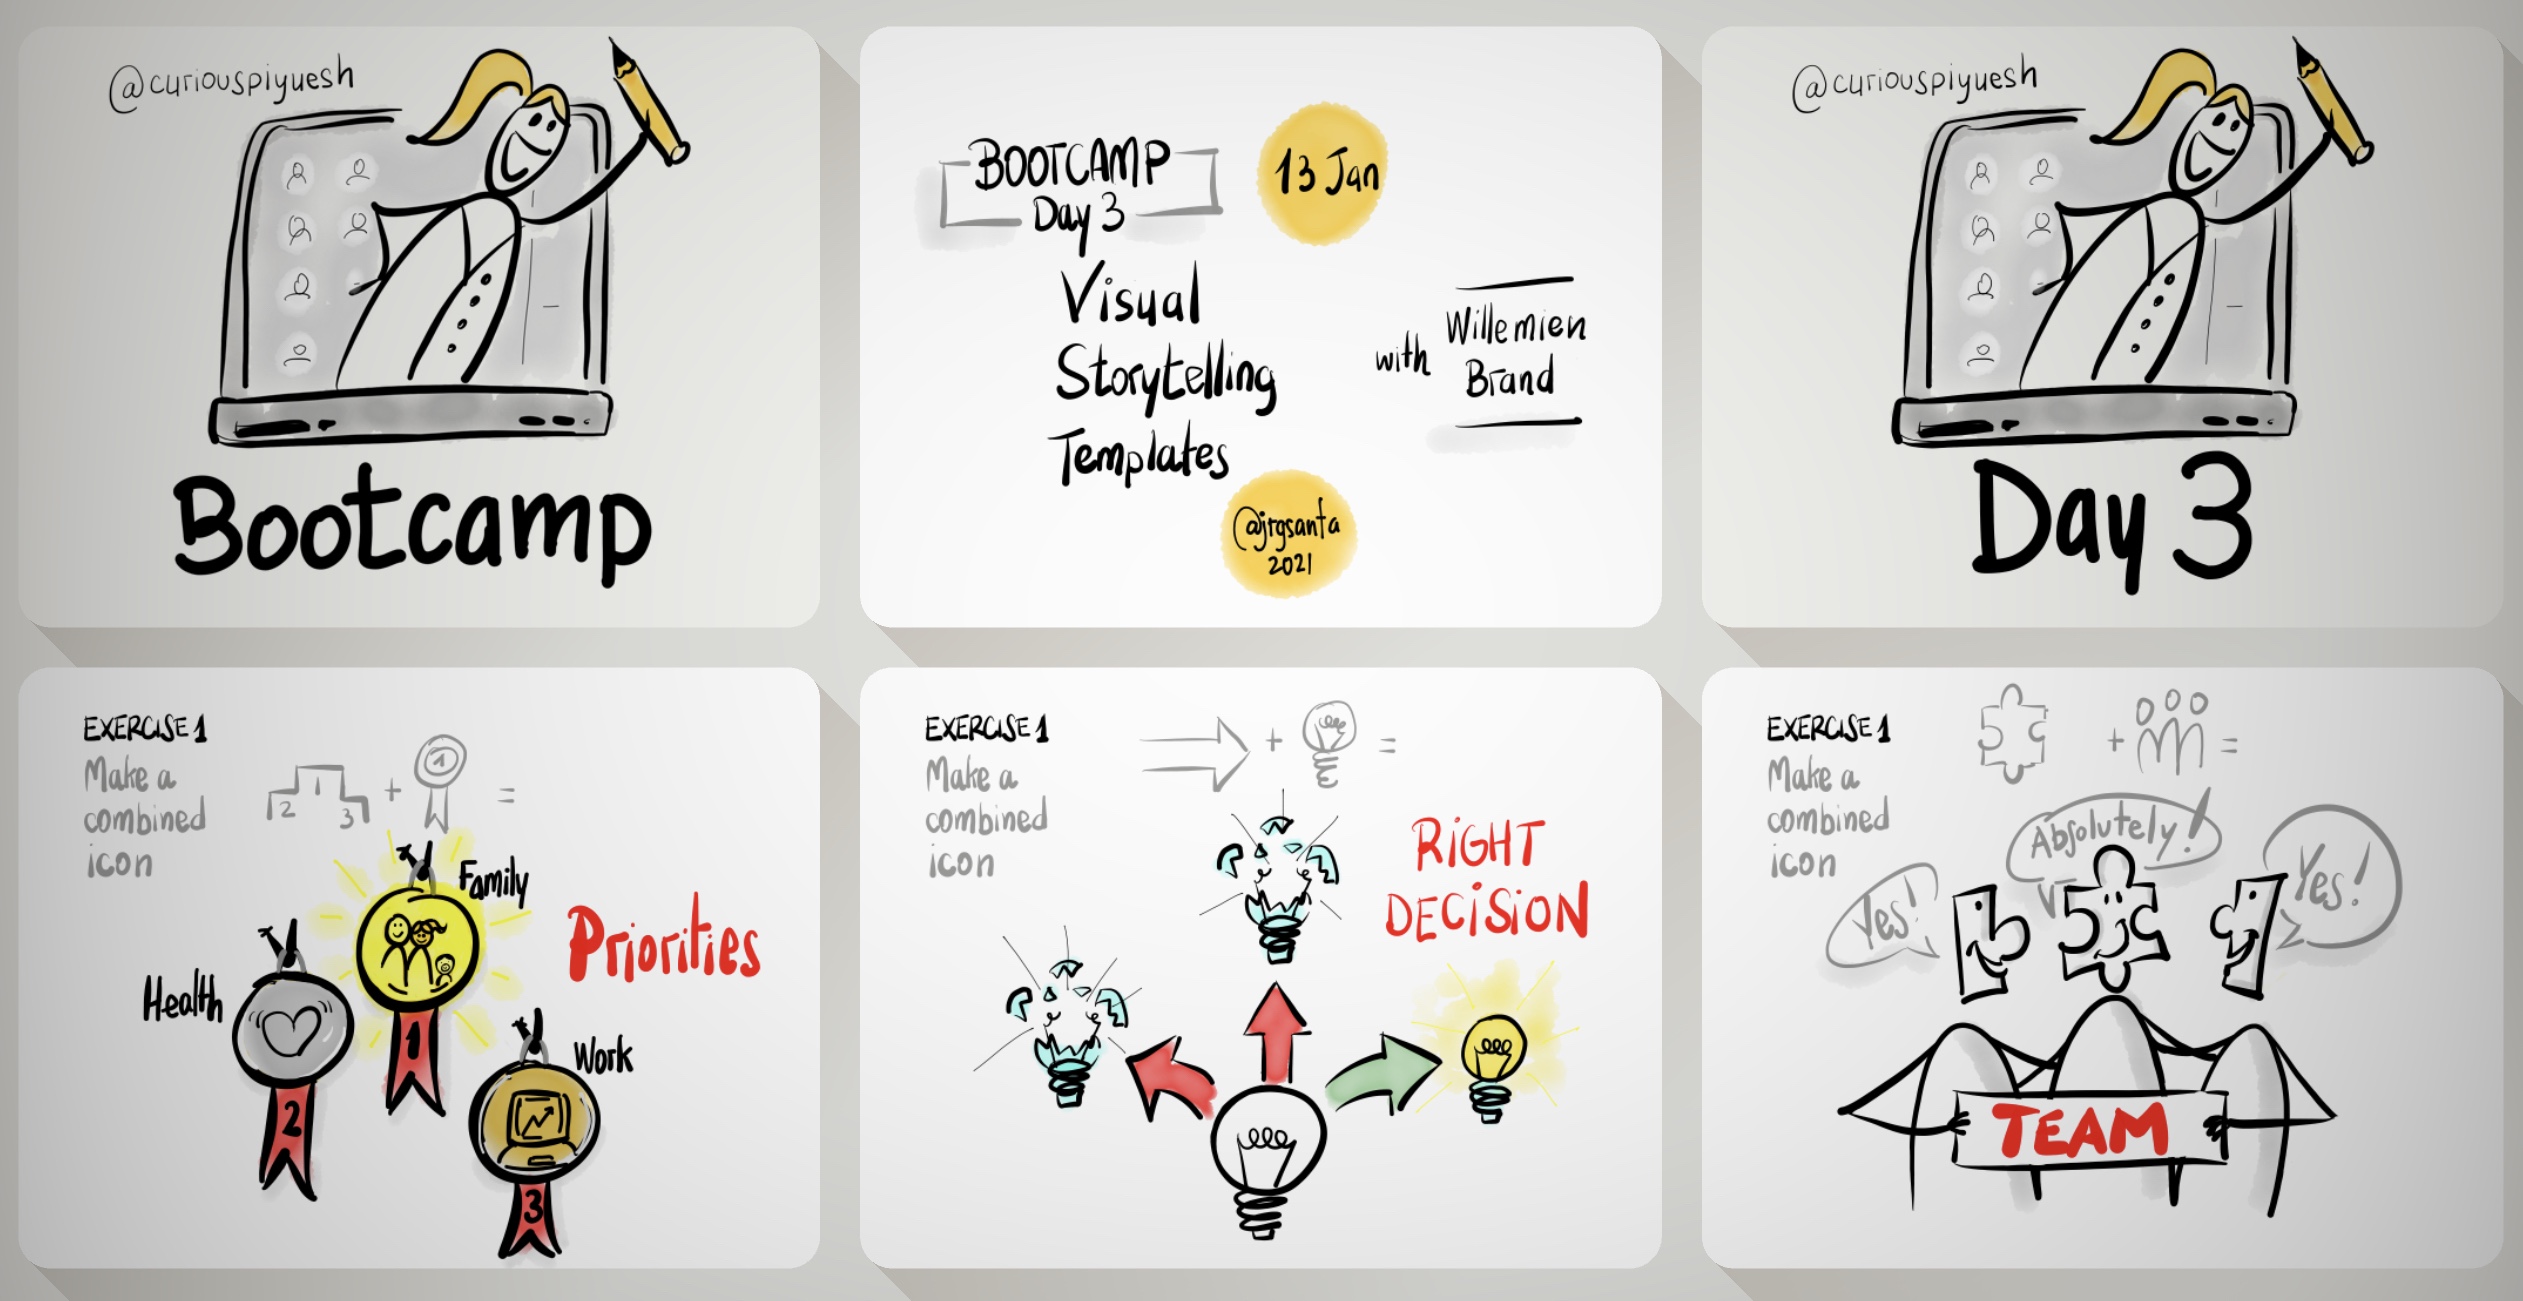 @curiouspiyuesh
Bootcamp
BOOTCAMP
Day 3
13 Jan
Visual
Storytelling
Templates
with
Willemien
Brand
@jrgsanta
2021
@curiouspiyuesh
Day 3
EXERCISE 1
Make a
combined
icon
2 1 3 + 1 =
Family
Health
Work
Priorities
1
2
3
EXERCISE 1
Make a
combined
icon
+ =
RIGHT
DECISION
EXERCISE 1
Make a
combined
icon
+ =
Yes!
Absolutely!
Yes!
TEAM